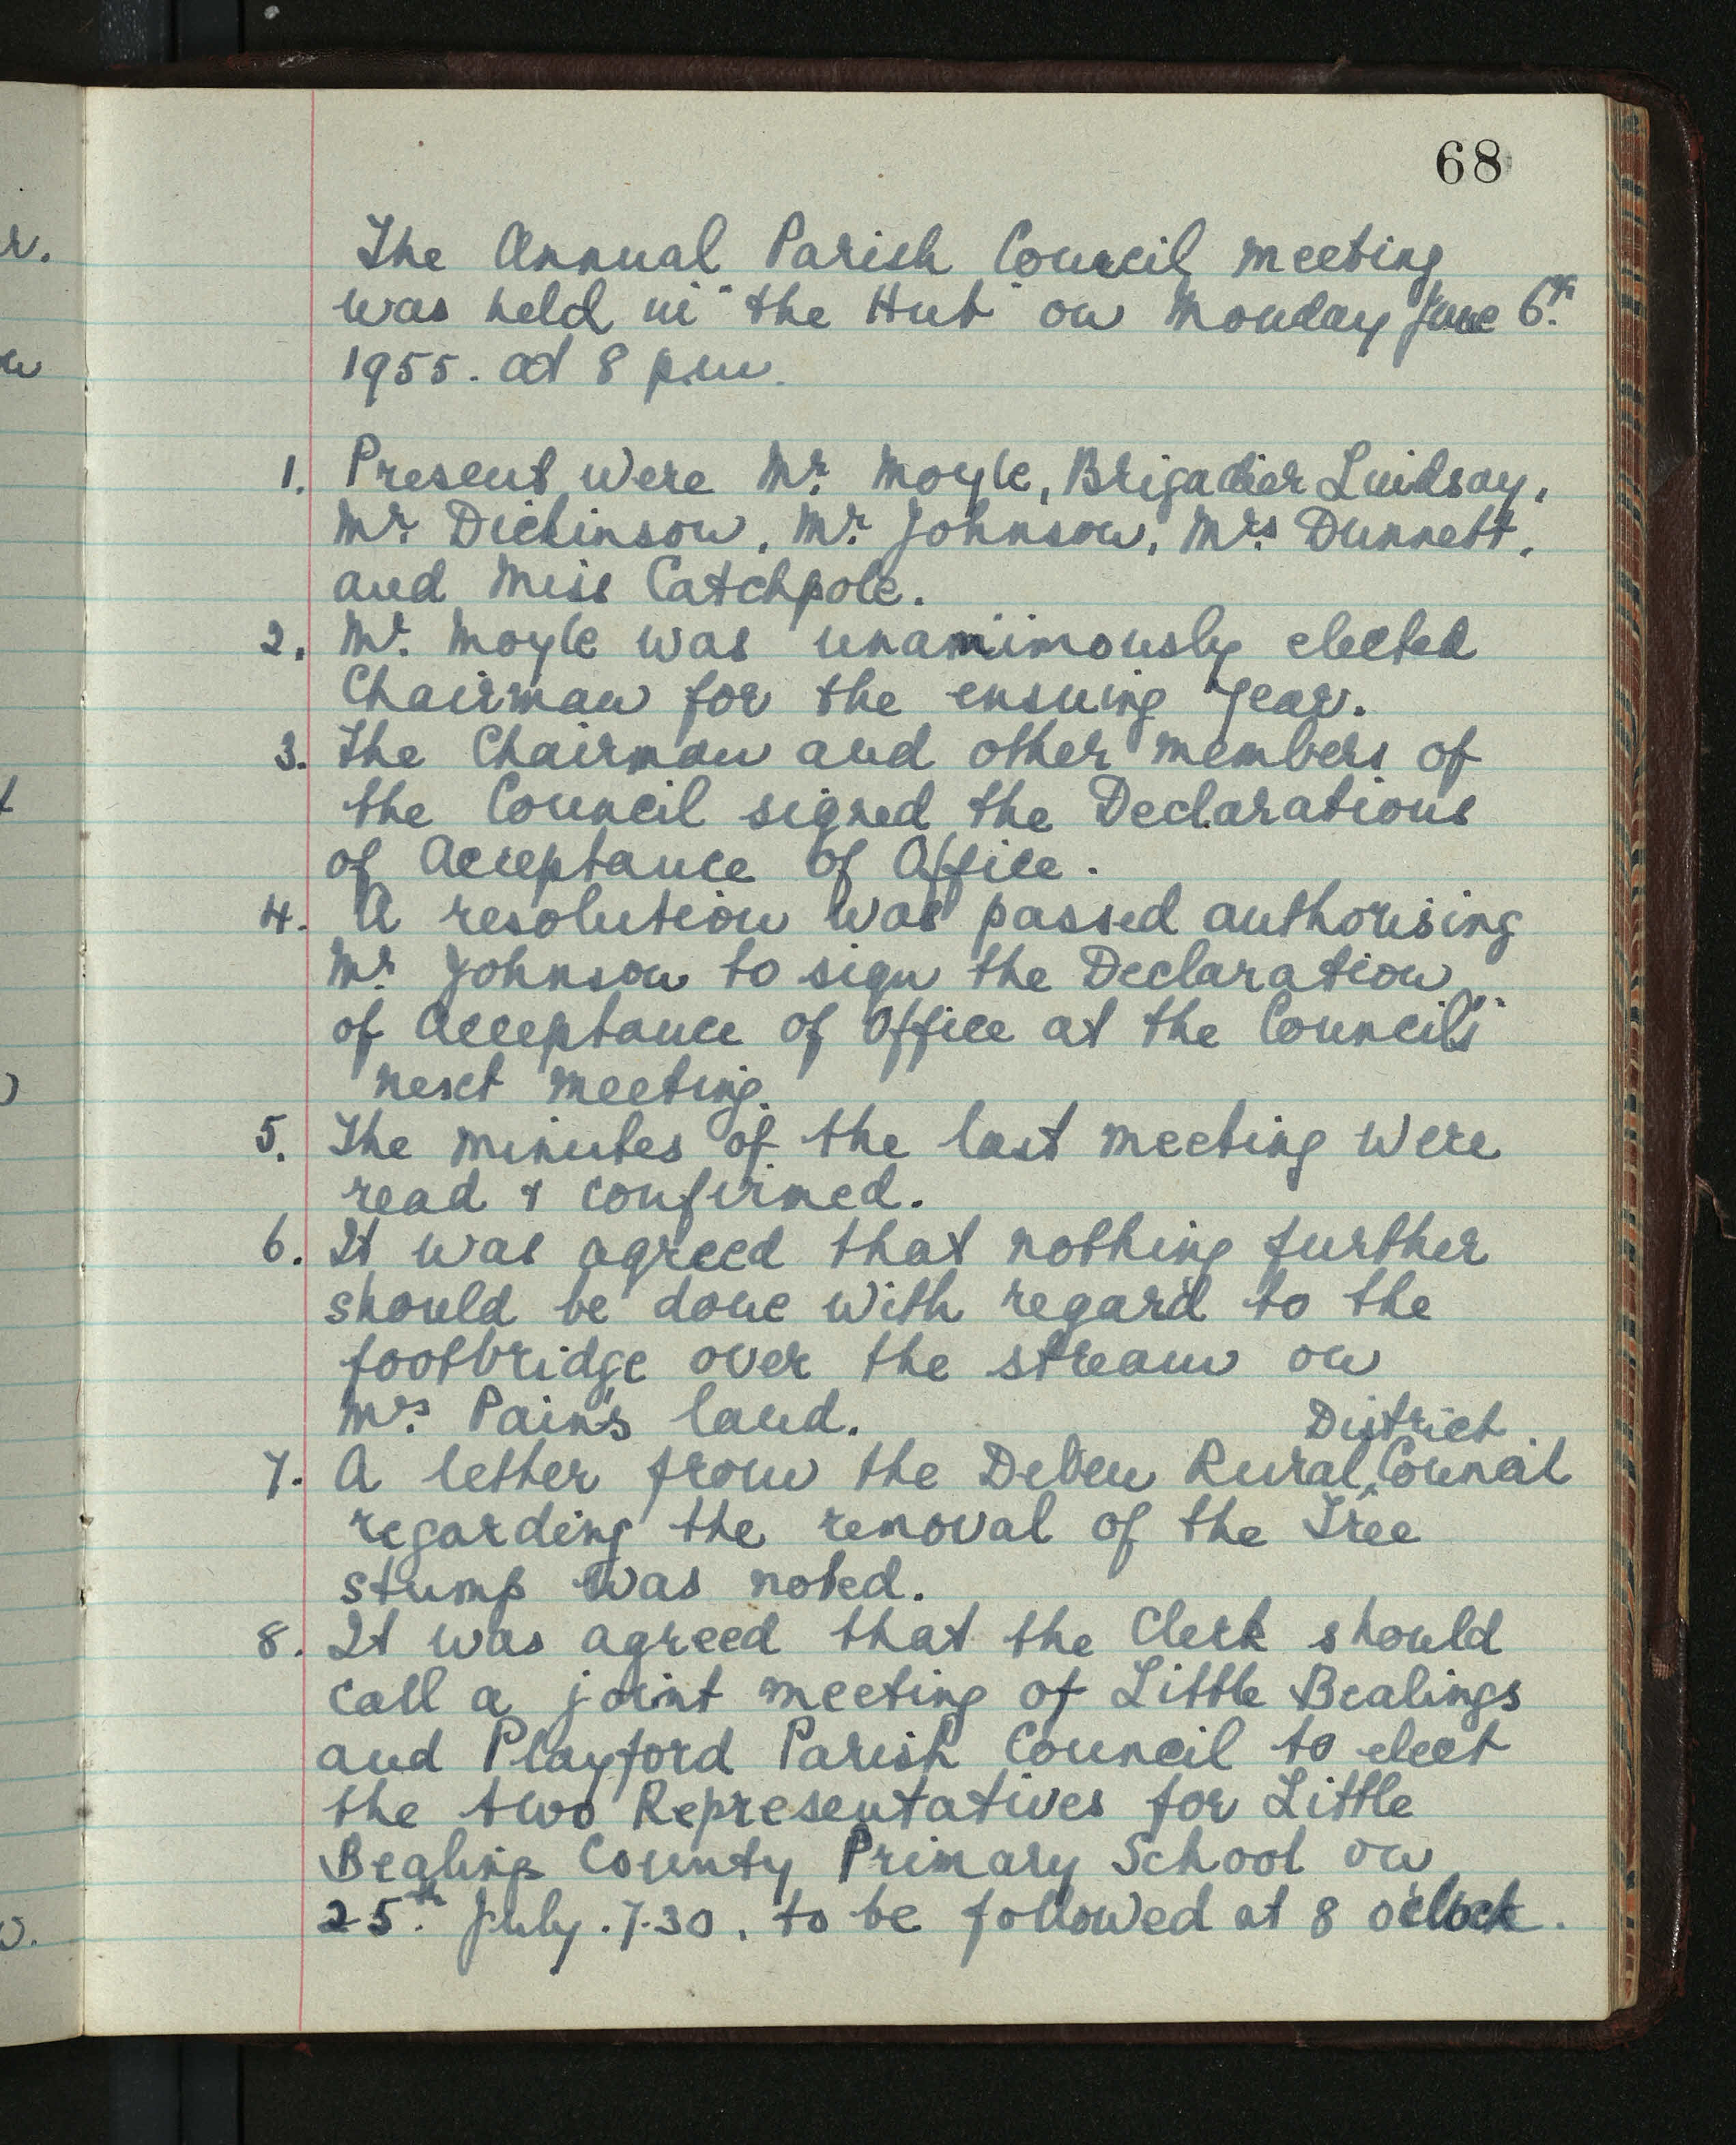 68
The Annual Parish Council meeting
was held in "the Hut" on Monday June 6th.
1955. at 8 p.m.
1. Present were Mr. Moyle, Brigadier Lindsay,
Mr. Dickinson, Mr. Johnson, Mrs. Dunnett,
and Miss Catchpole.
2. Mr. Moyle was unamimously elected
Chairman for the ensuing year.
3. The Chairman and other members of
the Council signed the Declarations
of Acceptance of Office.
4. A resolution was passed authorising
Mr. Johnson to sign the Declaration
of Acceptance of Office at the Council's
next meeting.
5. The minutes of the last meeting were
read & confirmed.
6. It was agreed that nothing further
should be done with regard to the
footbridge over the stream on
Mrs. Pain's land.
7. A letter from the Deben Rural District Council
regarding the removal of the Tree
stump was noted.
8. It was agreed that the Clerk should
call a joint meeting of Little Bealings
and Playford Parish Council to elect
the two Representatives for Little
Bealings County Primary School on
25th. July. 7.30. to be followed at 8 o'clock.